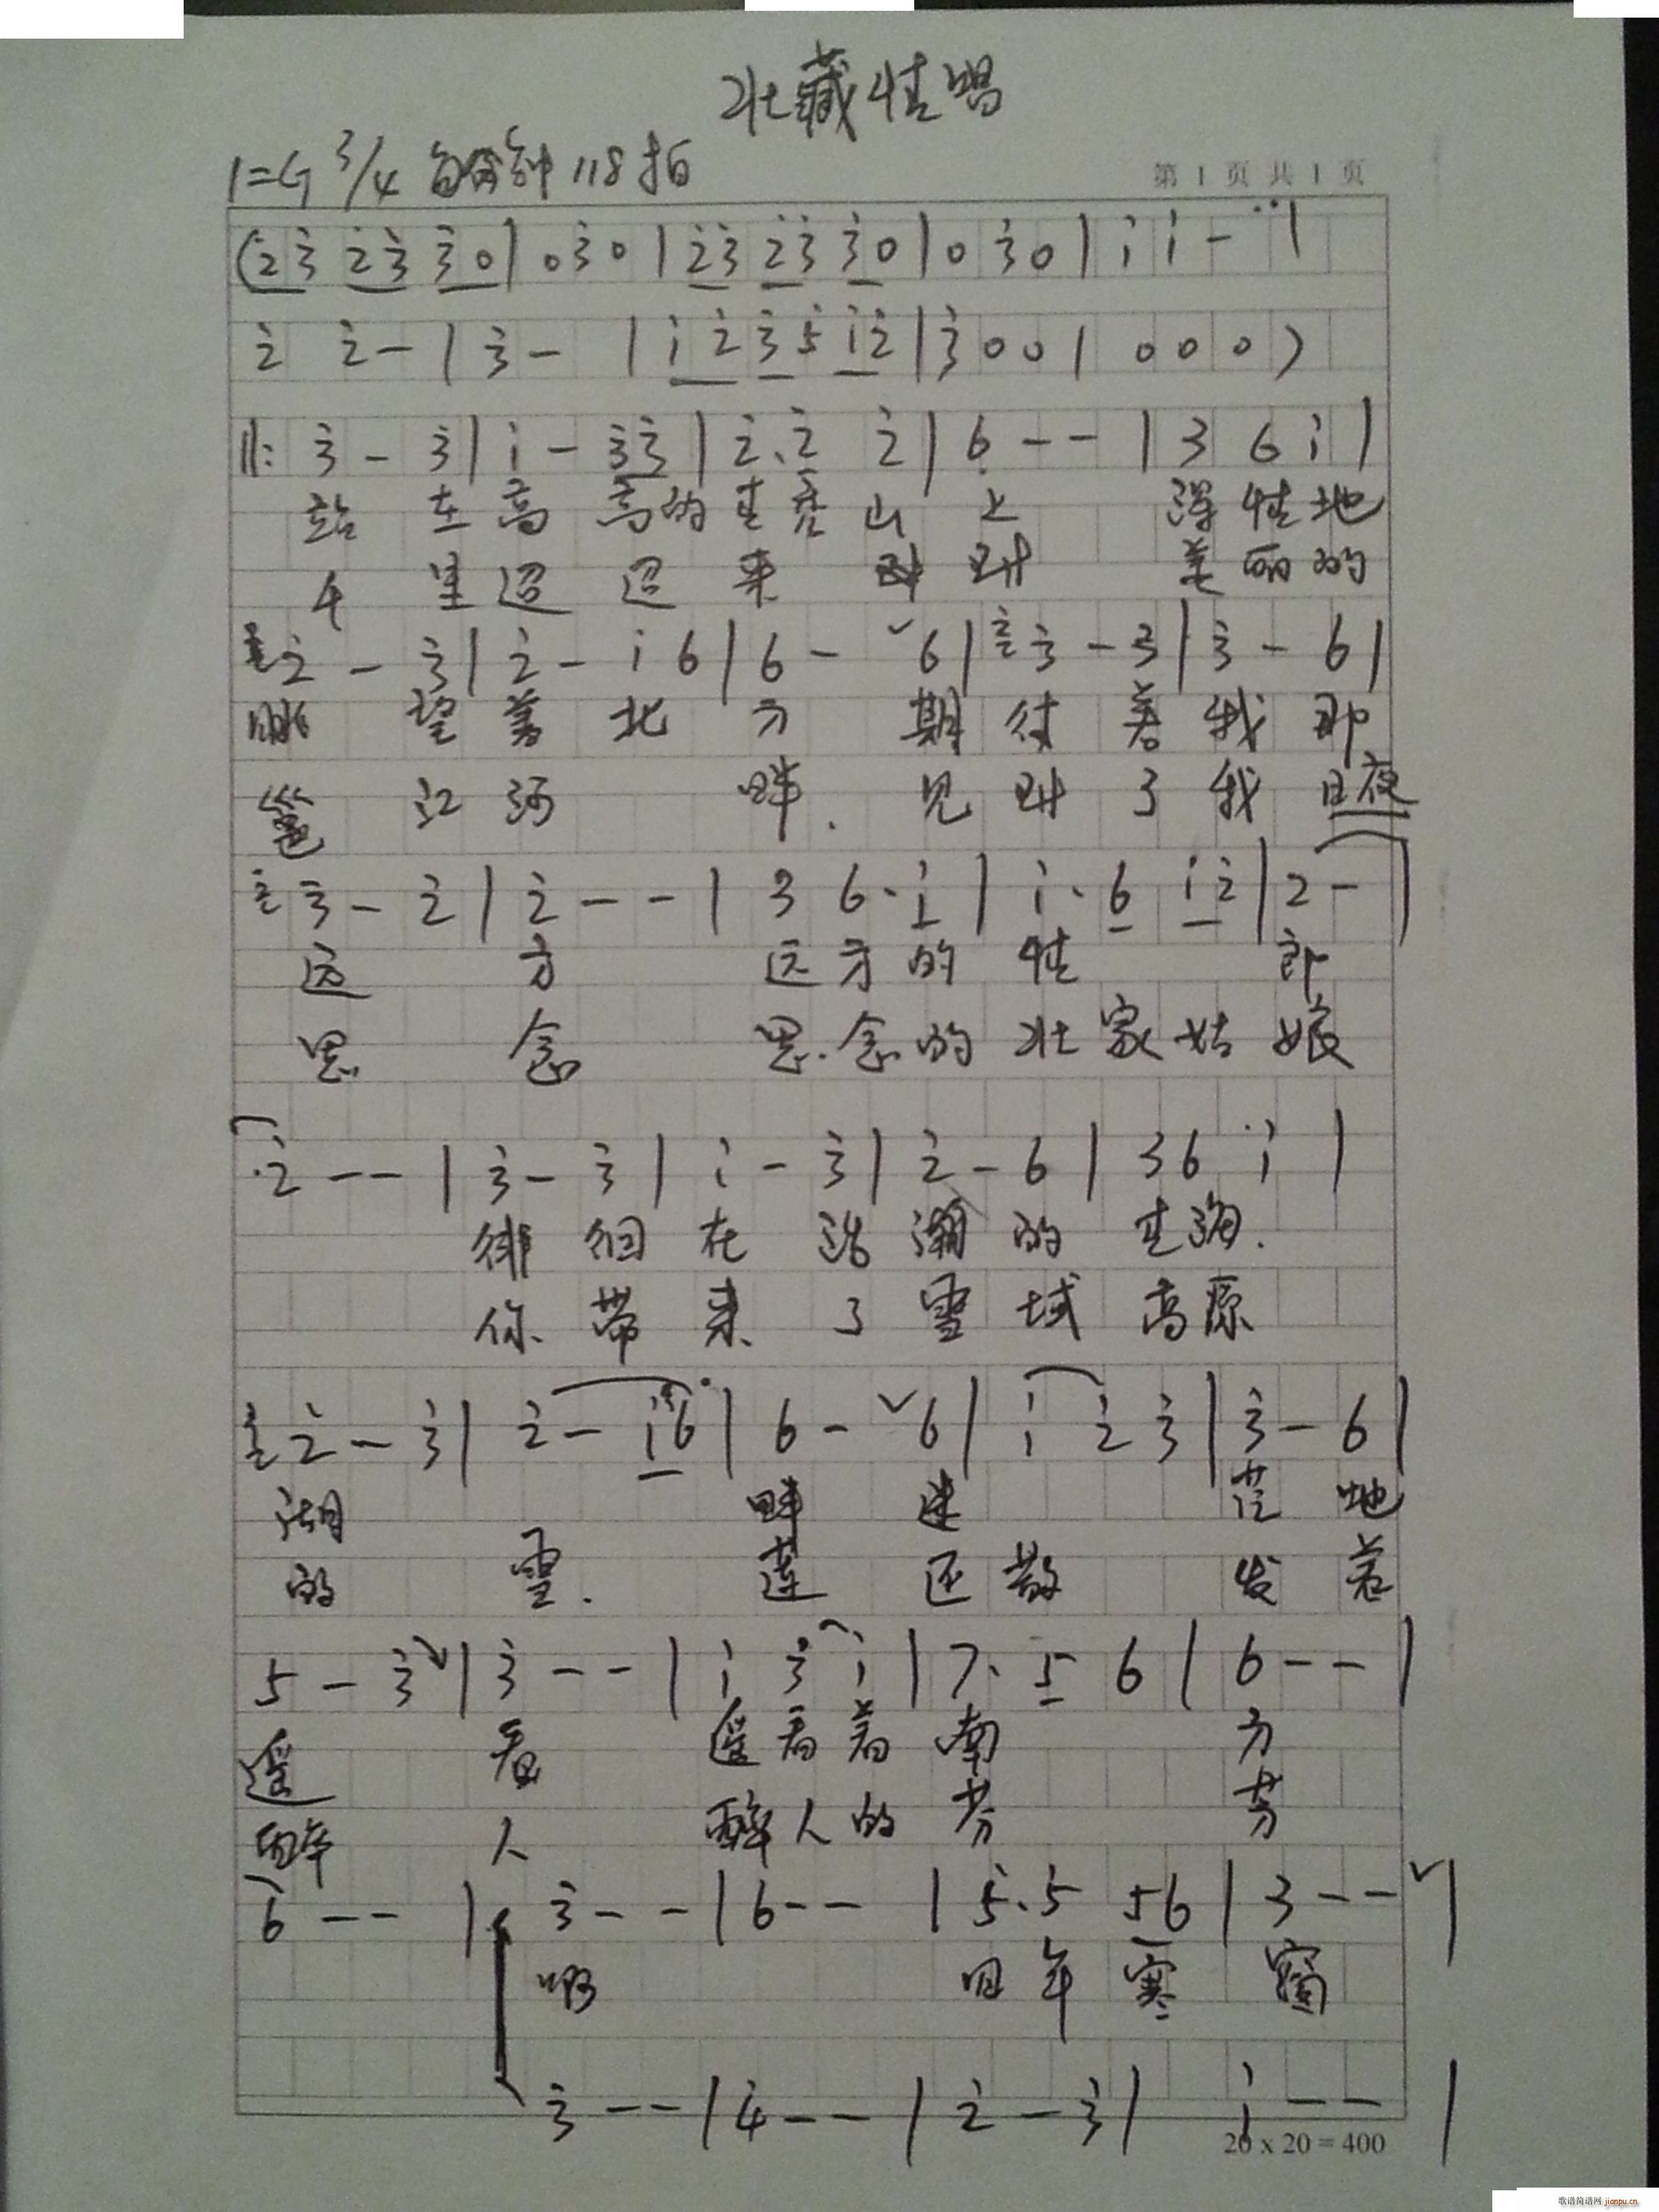 壮藏情唱
1=G 3/4 每分钟118拍
第 1 页 共 1 页
(2̇3̇ 2̇3̇ 3̇0|03̇0|2̇3̇ 2̇3̇ 3̇0|03̇0|1̇ 1̇ -|
2̇ 2̇ -|3̇ -|1̇2̇ 3̇5 1̇2̇|3̇00|000)
||: 3̇ - 3̇|1̇ - 3̇3̇|2̇. 2̇ 2̇|6 - -|3 6 1̇|
站 在 高 高的 秀 山 上 深 情 地
千 里 迢 迢 来 深 美 丽 的
2̇ - 3̇|2̇ - 1̇6|6 - ˇ6|3̇ - 3|3̇ - 6|
眺 望 着 北 方 期 待 着 我 那
邕 江 河 畔. 见 了 我 日夜
3̇ - 2|2̇ - -|3 6. 1̇|1̇. 6 1̇2̇|2 -|
远 方 远 方 的 情 郎
思 念 思. 念 的 壮 家 姑 娘
2̇ - -|3̇ - 3̇|1̇ - 3̇|2̇ - 6|36 1̇|
徘 徊 在 浩 瀚 的
你 带 来 了 雪 域 高 原
2̇ - 3̇|2̇ - 1̇6|6 - ˇ6|1̇ 2̇ 3̇|3̇ - 6|
湖 畔 迷 茫 地
的 雪. 莲 还 散 发 着
5 - 3̇|3̇ - -|1̇ 3̇ 1̇|7. 5 6|6 - -|
遥 看 遥 看 着 南 方
醉 人 醉 人 的 芬 芳
6 - -|3̇ - -|6 - -|5. 5 56|3 - - ˇ|
啊 年 寒 窗
3̇ - -|4̇ - -|2̇ - 3̇|1̇ - -|
20 x 20 = 400
歌谱简谱网 jianpu.cn